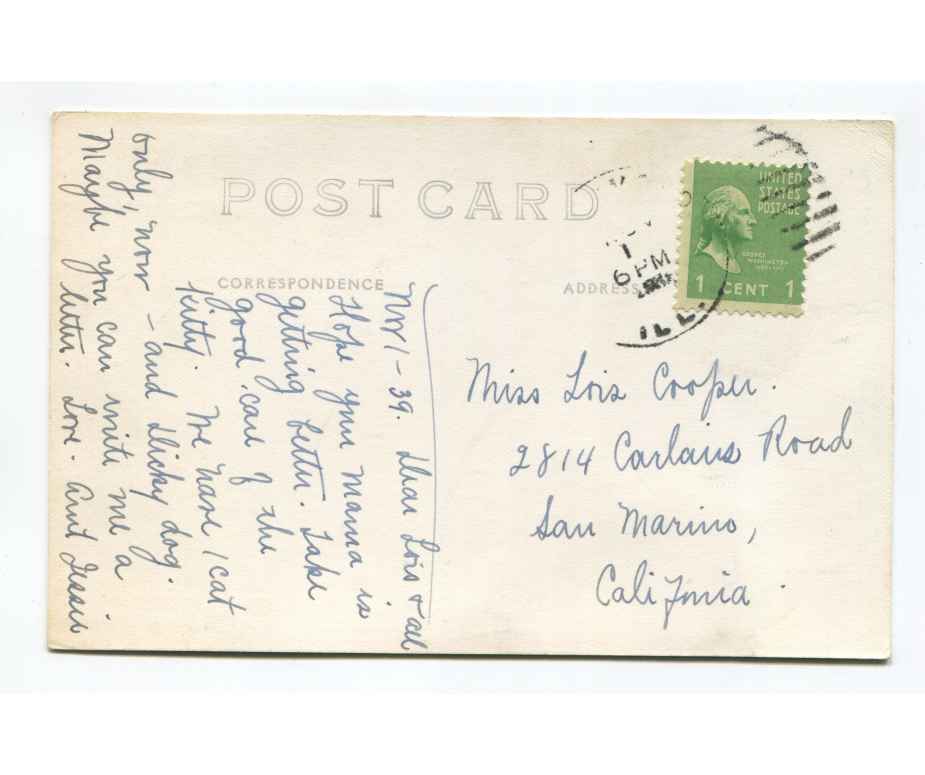 POST CARD
CORRESPONDENCE
ADDRESS
UNITED
STATES
POSTAGE
GEORGE
WASHINGTON
1 CENT 1
1
6 PM
ILL.
Miss Lois Cooper.
2814 Carlaris Road
San Marino,
California.
Nov 1 - 39. Dear Lois & all
Hope your Mama is
getting better. Take
good care of the
kitty. We have 1 cat
only, now - and Slicky dog.
Maybe you can write me a
letter. Love. Aunt Jessie